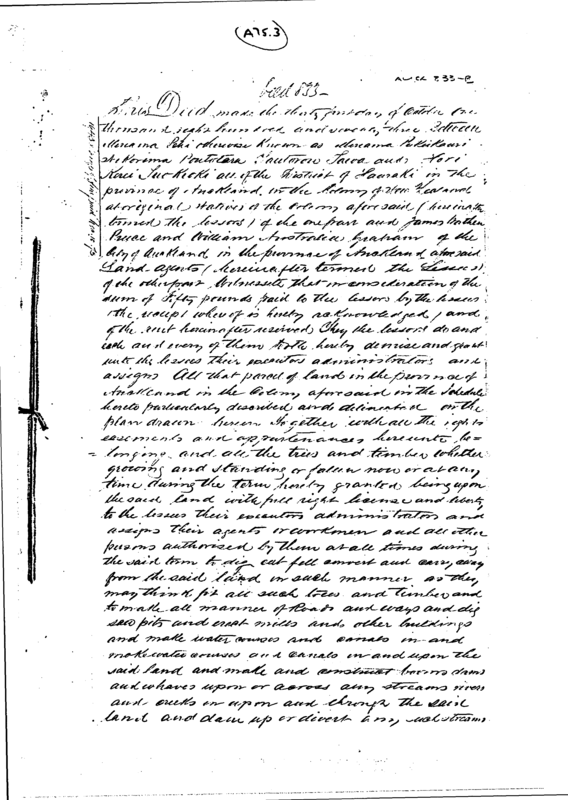 (A75.3)
Auck 833-P
Deed 833 -
This Deed made the thirty first day of October One
thousand eight hundred and seventy three Between
Mereana otherwise known as Mereana
and
all of the District of Hauraki in the
province of Auckland, in the Colony of New Zealand
aboriginal Natives of the Colony aforesaid (hereinafter
termed the lessors) of the one part and James Mathew
and William Australia Graham of the
City of Auckland in the province of Auckland aforesaid
Land Agents (hereinafter termed the Lessees)
of the other part, Witnesseth that in consideration of the
sum of Fifty pounds paid to the lessors by the lessees
(the receipt whereof is hereby acknowledged) and
of the rent hereinafter reserved They the lessors do and
each and every of them doth hereby demise and grant
unto the lessees their executors administrators and
assigns All that parcel of land in the province of
Auckland in the Colony aforesaid in the Schedule
hereto particularly described and delineated on the
plan drawn hereon Together with all the rights
easements and appurtenances hereunto be=
=longing and all the trees and timber whether
growing and standing or fallen now or at any
time during the term hereby granted being upon
the said land with full right license and liberty
to the lessees their executors administrators and
assigns their agents or workmen and all other
persons authorised by them at all times during
the said term to dig cut fell convert and carry away
from the said land in such manner as they
may think fit all such trees and timber and
to make all manner of Roads and ways and dig
saw pits and erect mills and other buildings
and make water courses and canals in and
make water courses and canals in and upon the
said land and make and construct booms dams
and wharves upon or across any streams rivers
and creeks in upon and through the said
land and dam up or divert any such streams